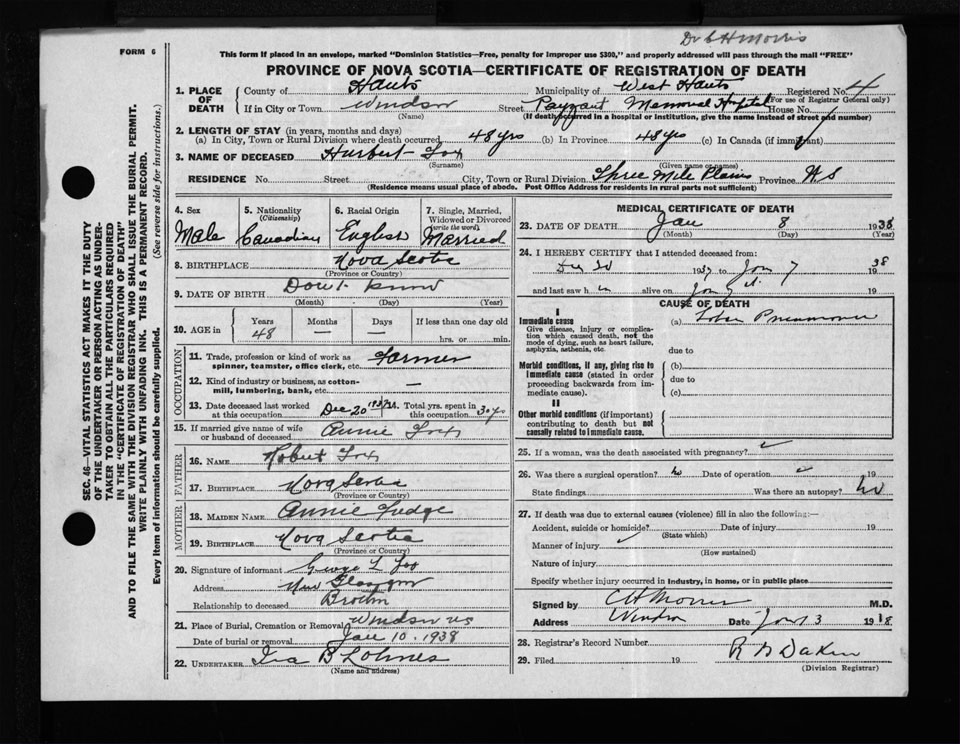 Dr C H Morris
FORM 6
This form if placed in an envelope, marked "Dominion Statistics—Free, penalty for improper use $300," and properly addressed will pass through the mail "FREE"
PROVINCE OF NOVA SCOTIA—CERTIFICATE OF REGISTRATION OF DEATH
SEC. 46—VITAL STATISTICS ACT MAKES IT THE DUTY
OF THE UNDERTAKER OR PERSON ACTING AS UNDER-
TAKER TO OBTAIN ALL THE PARTICULARS REQUIRED
IN THE "CERTIFICATE OF REGISTRATION OF DEATH"
AND TO FILE THE SAME WITH THE DIVISION REGISTRAR WHO SHALL ISSUE THE BURIAL PERMIT.
WRITE PLAINLY WITH UNFADING INK. THIS IS A PERMANENT RECORD.
Every item of information should be carefully supplied. (See reverse side for instructions.)
1. PLACE OF DEATH County of Hants Municipality of West Hants Registered No. 4
(For use of Registrar General only)
If in City or Town Windsor Street Payzant Memorial Hospital House No.
(Name) (If death occurred in a hospital or institution, give the name instead of street and number)
2. LENGTH OF STAY (in years, months and days)
(a) In City, Town or Rural Division where death occurred 48 yrs (b) In Province 48 yrs (c) In Canada (if immigrant)
3. NAME OF DECEASED Hurbert Fox
(Surname) (Given name or names)
RESIDENCE No. Street City, Town or Rural Division Three Mile Plains Province N S
(Residence means usual place of abode. Post Office Address for residents in rural parts not sufficient)
4. Sex Male
5. Nationality (Citizenship) Canadian
6. Racial Origin English
7. Single, Married, Widowed or Divorced (write the word) Married
8. BIRTHPLACE Nova Scotia
(Province or Country)
9. DATE OF BIRTH Don't know
(Month) (Day) (Year)
10. AGE in Years 48 Months — Days — If less than one day old
hrs. or min.
OCCUPATION
11. Trade, profession or kind of work as spinner, teamster, office clerk, etc. Farmer
12. Kind of industry or business, as cotton-mill, lumbering, bank, etc. —
13. Date deceased last worked at this occupation Dec 20 1937 14. Total yrs. spent in this occupation 30 yrs
15. If married give name of wife or husband of deceased Annie Fox
FATHER
16. NAME Robert Fox
17. BIRTHPLACE Nova Scotia
(Province or Country)
MOTHER
18. MAIDEN NAME Annie Fudge
19. BIRTHPLACE Nova Scotia
(Province or Country)
20. Signature of informant George L Fox
Address New Glasgow
Relationship to deceased Brother
21. Place of Burial, Cremation or Removal Windsor NS
Date of burial or removal Jan 10 - 1938
22. UNDERTAKER Ira B Lohnes
(Name and address)
MEDICAL CERTIFICATE OF DEATH
23. DATE OF DEATH Jan 8 1938
(Month) (Day) (Year)
24. I HEREBY CERTIFY that I attended deceased from:
Dec 20 1937 to Jan 7 1938
and last saw h m alive on Jan 7 19
CAUSE OF DEATH
I
Immediate cause (a) Lobar Pneumonia
Give disease, injury or complica-
tion which caused death, not the
mode of dying, such as heart failure,
asphyxia, asthenia, etc. due to
Morbid conditions, if any, giving rise to (b)
immediate cause (stated in order
proceeding backwards from im-
mediate cause). due to
(c)
II
Other morbid conditions (if important)
contributing to death but not
causally related to immediate cause.
25. If a woman, was the death associated with pregnancy?
26. Was there a surgical operation? No Date of operation 19
State findings Was there an autopsy? No
27. If death was due to external causes (violence) fill in also the following:—
Accident, suicide or homicide? Date of injury 19
(State which)
Manner of injury
(How sustained)
Nature of injury
Specify whether injury occurred in industry, in home, or in public place
Signed by C H Morris M.D.
Address Windsor Date Jan 3 1918
28. Registrar's Record Number
29. Filed 19 Dakin
(Division Registrar)